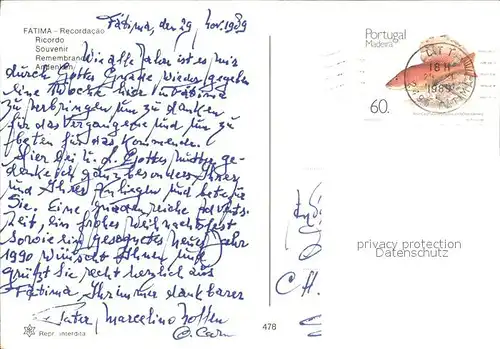 Fátima, den 29. Nov. 1989
FATIMA – Recordação
Ricordo
Souvenir
Remembrance
Andenken
Wie alle Jahre ist es mir
durch Gottes Gnade wieder gegeben
eine Woche hier in Fatima
zu verbringen um zu danken
für das Vergangene und um zu
beten für das Kommende.
Hier bei u. l. Gottesmutter ge-
denke ich ganz besonders Ihrer
und Ihres Anliegen und bete für
Sie. Eine gnadenreiche Advents-
zeit, ein frohes Weihnachtsfest
sowie ein gesegnetes neues Jahr
1990 wünscht Ihnen und
grüßt Sie recht herzlich aus
Fatima, Ihr immer dankbarer
Pater Marcelino
O. Carm
Repr. interdita
478
Portugal
Madeira
60.
18 H
1989
CH
privacy protection
Datenschutz